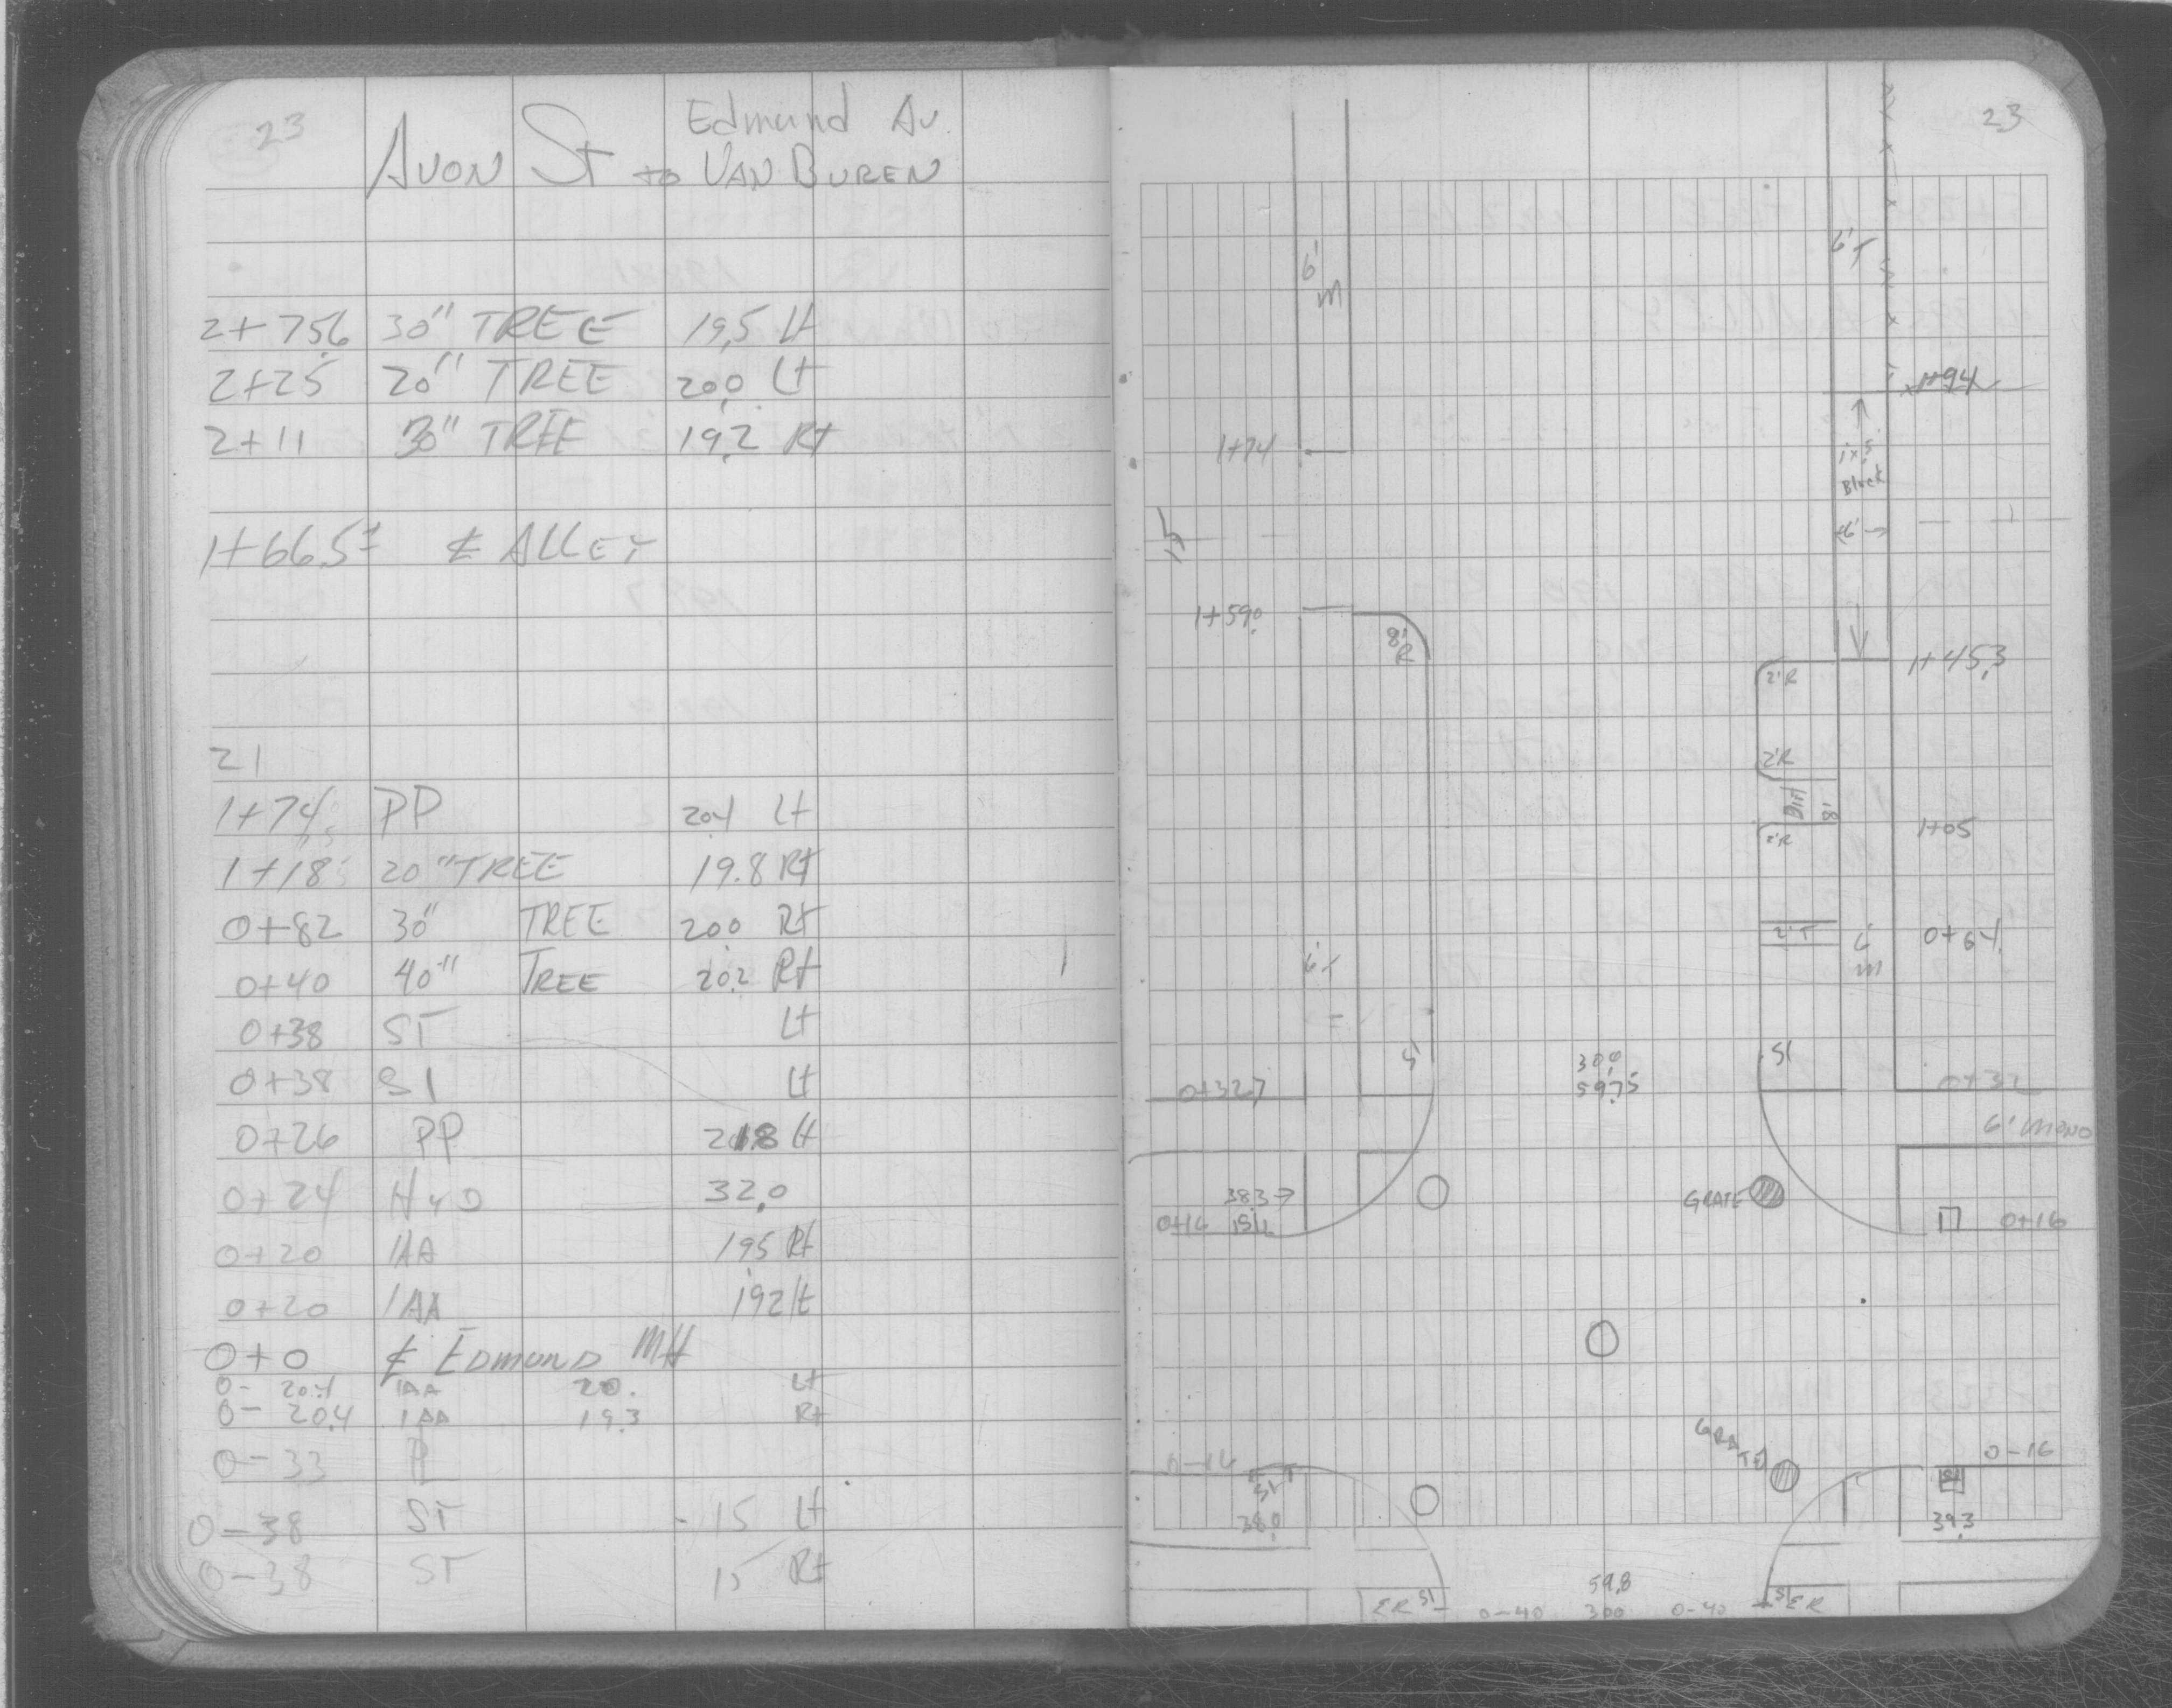 23
Edmund Av.
AVON St to VAN BUREN
2+75.6 30" TREE 19.5 Lt
2+25 20" TREE 20.0 Lt
2+11 30" TREE 19.2 Rt
1+66.5± ȼ ALLEY
21
1+74 PP 20.4 Lt
1+18 20" TREE 19.8 Rt
0+82 30" TREE 20.0 Rt
0+40 40" TREE 20.2 Rt
0+38 ST Lt
0+38 SI Lt
0+26 PP Lt
0+24 HYD 32.0
0+20 1AA 19.5 Rt
0+20 1AA 19.2 Lt
0+0 ȼ EDMUND MH
0- 20.4 1AA 20. Lt
0- 20.4 1AA 19.3 Rt
0-33
0-38 ST - 15 Lt
0-38 ST 15 Rt
23
6' M
6' T
1+94
1+74
1x.5 Block
6'
1+59.0
8'R
1+45.3
2'R
2'R
Dirt 8'
2'R
1+05
2'T
6' M
0+64
30.0
59.75
SI
0+32.7
0+32
6' MONO
38.3
0+16
GRATE
0+16
GRATE
0-16
0-16
38.0
39.3
59.8
ER SI 0-40 30.0 0-40 SI ER